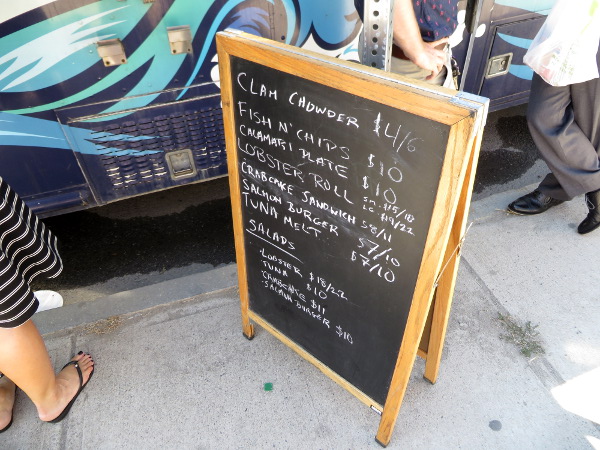 CLAM CHOWDER $4/6
FISH N' CHIPS $10
CALAMARI PLATE $10
LOBSTER ROLL SC $15/18
LG $19/22
CRABCAKE SANDWICH $8/11
SALMON BURGER $7/10
TUNA MELT $7/10
SALADS
- LOBSTER $18/22
- TUNA $10
- CRABCAKE $11
- SALMON BURGER $10